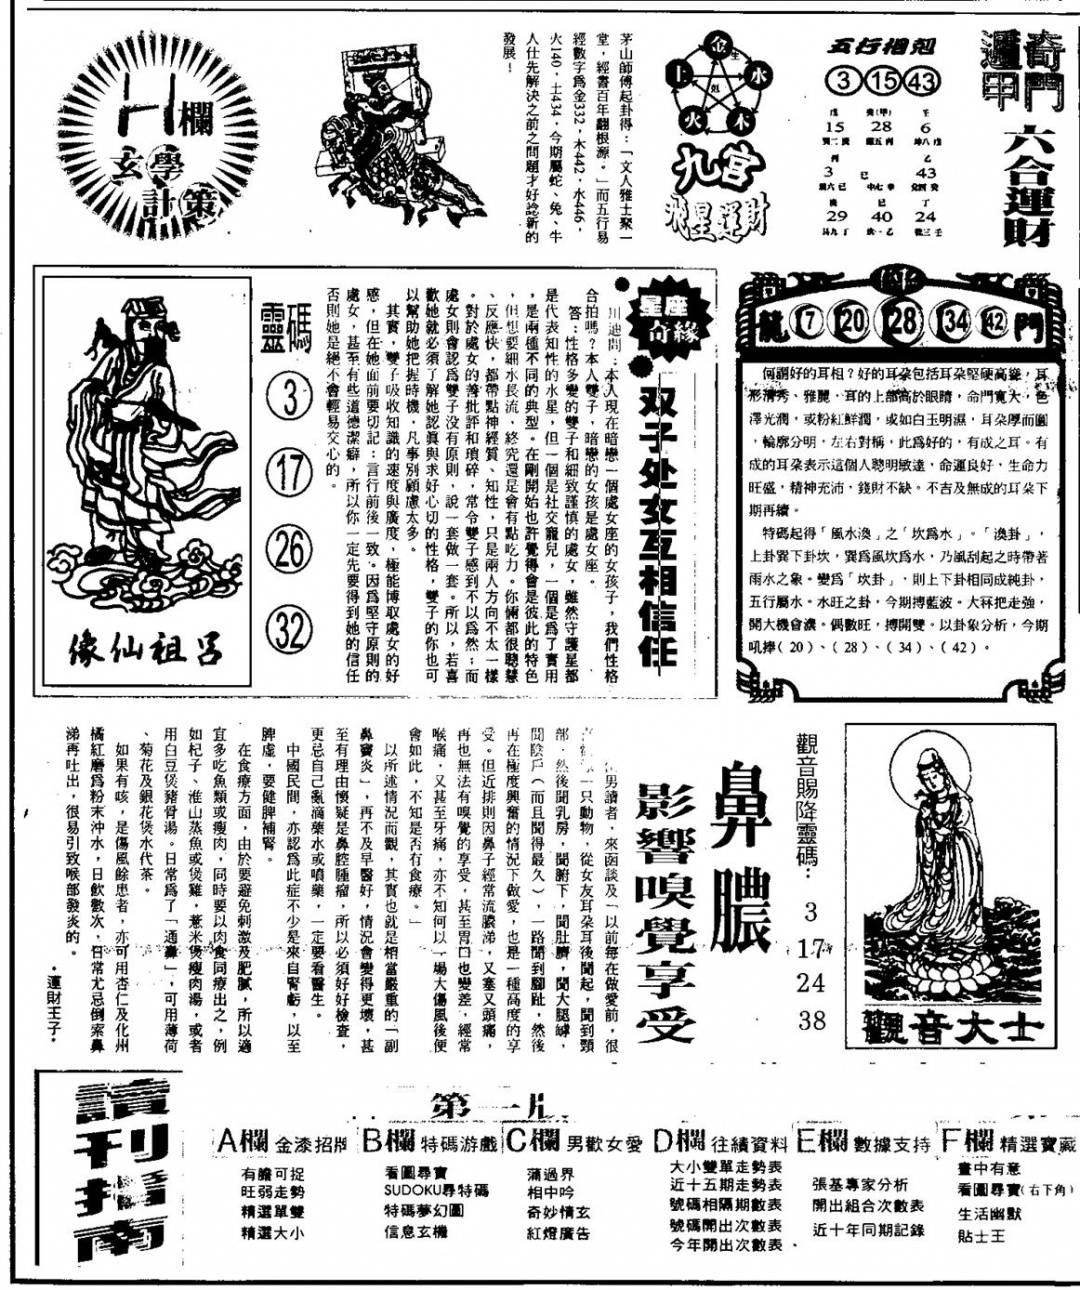 奇門
遁甲
六合運財
五行相剋
3 15 43
戊 癸(甲) 壬
15 28 6
丙 乙
3 巳 43
29 40 24
金
生
水
木
火
土
剋
九宮
飛星運財
茅山師傅起卦得：「文人雅士聚一
堂，經書百年翻根源。」而五行易
經數字爲金332，木442，水446，
火140，土434，今期屬蛇、兔、牛
人仕先解決之前之問題才好諗新的
發展！
H欄
玄學
計策
龍門
7 20 28 34 42
何謂好的耳相？好的耳朵包括耳朵堅硬高聳，耳
形清秀、雅麗，耳的上部高於眼睛，命門寬大，色
澤光潤，或粉紅鮮潤，或如白玉明濕，耳朵厚而圓
，輪廓分明，左右對稱，此爲好的，有成之耳。有
成的耳朵表示這個人聰明敏達，命運良好，生命力
旺盛，精神充沛，錢財不缺。不吉及無成的耳朵下
期再續。
特碼起得「風水渙」之「坎爲水」。「渙卦」，
上卦巽下卦坎，巽爲風坎爲水，乃風刮起之時帶著
雨水之象。變爲「坎卦」，則上下卦相同成純卦，
五行屬水。水旺之卦，今期搏藍波。大冧把走強，
開大機會濃。偶數旺，搏開雙。以卦象分析，今期
吼捧（20）、（28）、（34）、（42）。
星座
奇緣
双子处女互相信任
川迪問：本人現在暗戀一個處女座的女孩子，我們性格
合拍嗎？本人雙子，暗戀的女孩是處女座。
答：性格多變的雙子和細致謹慎的處女，雖然守護星都
是代表知性的水星，但一個是社交寵兒，一個是爲了實用
，是兩種不同的典型。在剛開始也許覺得會是彼此的特色
，但想要細水長流，終究還是會有點吃力。你倆都很聰慧
、反應快，都帶點神經質、知性，只是兩人方向不太一樣
。對於處女的善批評和瑣碎，常令雙子感到不以爲然；而
處女則會認爲雙子沒有原則，說一套做一套。所以，若喜
歡她就必須了解她認真與求好心切的性格，雙子的你也可
以幫助她把握時機，凡事別顧慮太多。
其實，雙子吸收知識的速度與廣度，極能博取處女的好
感，但在她面前要切記：言行前後一致。因爲堅守原則的
處女，甚至有些道德潔癖，所以你一定先要得到她的信任
否則她是絕不會輕易交心的。
靈碼
3
17
26
32
呂祖仙像
觀音大士
觀音賜降靈碼：
3
17
24
38
鼻膿
影響嗅覺享受
男讀者，來函談及「以前每在做愛前，很
一只動物，從女友耳朵後聞起，聞到頸
部，然後聞乳房，聞腑下，聞肚臍，聞大腿罅，
聞陰戶（而且聞得最久），一路聞到腳趾，然後
再在極度興奮的情況下做愛，也是一種高度的享
受。但近排則因鼻子經常流膿涕，又塞又頭痛，
再也無法有嗅覺的享受，甚至胃口也變差，經常
喉痛，又甚至牙痛，亦不知何以一場大傷風後便
會如此，不知是否有食療。」
以所述情況而觀，其實也就是相當嚴重的「副
鼻竇炎」，再不及早醫好，情況會變得更壞，甚
至有理由懷疑是鼻腔腫瘤，所以必須好好檢查，
更忌自己亂滴藥水或噴藥，一定要看醫生。
中國民間，亦認爲此症不少是來自腎虧，以至
脾虛，要健脾補腎。
在食療方面，由於要避免刺激及肥膩，所以適
宜多吃魚類或瘦肉，同時要以肉食同療出之，例
如杞子、淮山蒸魚或煲雞，薏米煲瘦肉湯，或者
用白豆煲豬骨湯。日常爲了「通鼻」，可用薄荷
、菊花及銀花煲水代茶。
如果有咳，是傷風餘患者，亦可用杏仁及化州
橘紅磨爲粉末沖水，日飲數次，日常尤忌倒索鼻
涕再吐出，很易引致喉部發炎的。
·運財王子·
讀刊指南
第一版
A欄 金漆招牌
有膽可捉
旺弱走勢
精選單雙
精選大小
B欄 特碼游戲
看圖尋寶
SUDOKU尋特碼
特碼夢幻圖
信息玄機
C欄 男歡女愛
蒲過界
相中吟
奇妙情玄
紅燈廣告
D欄 往績資料
大小雙單走勢表
近十五期走勢表
號碼相隔期數表
號碼開出次數表
今年開出次數表、
E欄 數據支持
張基專家分析
開出組合次數表
近十年同期記錄
F欄 精選寶藏
畫中有意
看圖尋寶（右下角）
生活幽默
貼士王